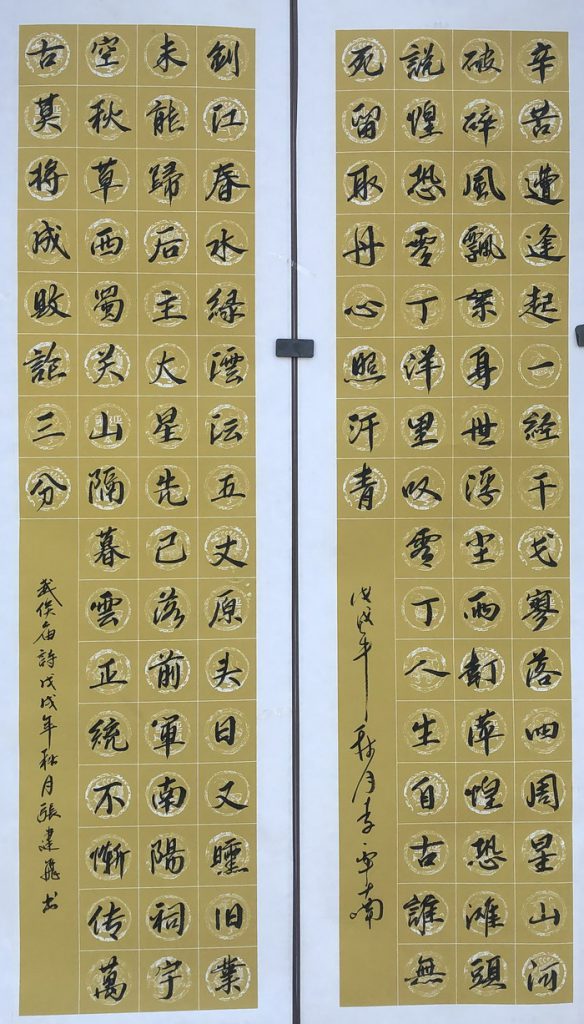 辛苦遭逢起一經干戈寥落四周星山河
破碎風飄絮身世浮尘雨打萍惶恐滩頭
說惶恐零丁洋里叹零丁人生自古誰無
死留取丹心照汗青
戊戌年秋月李
劍江春水緑澐沄五丈原头日又曛旧業
未能歸后主大星先已落前軍南陽祠宇
空秋草西蜀关山隔暮雲正統不慚传萬
古莫将成敗論三分
武侯庙詩戊戌年秋月張建飛书